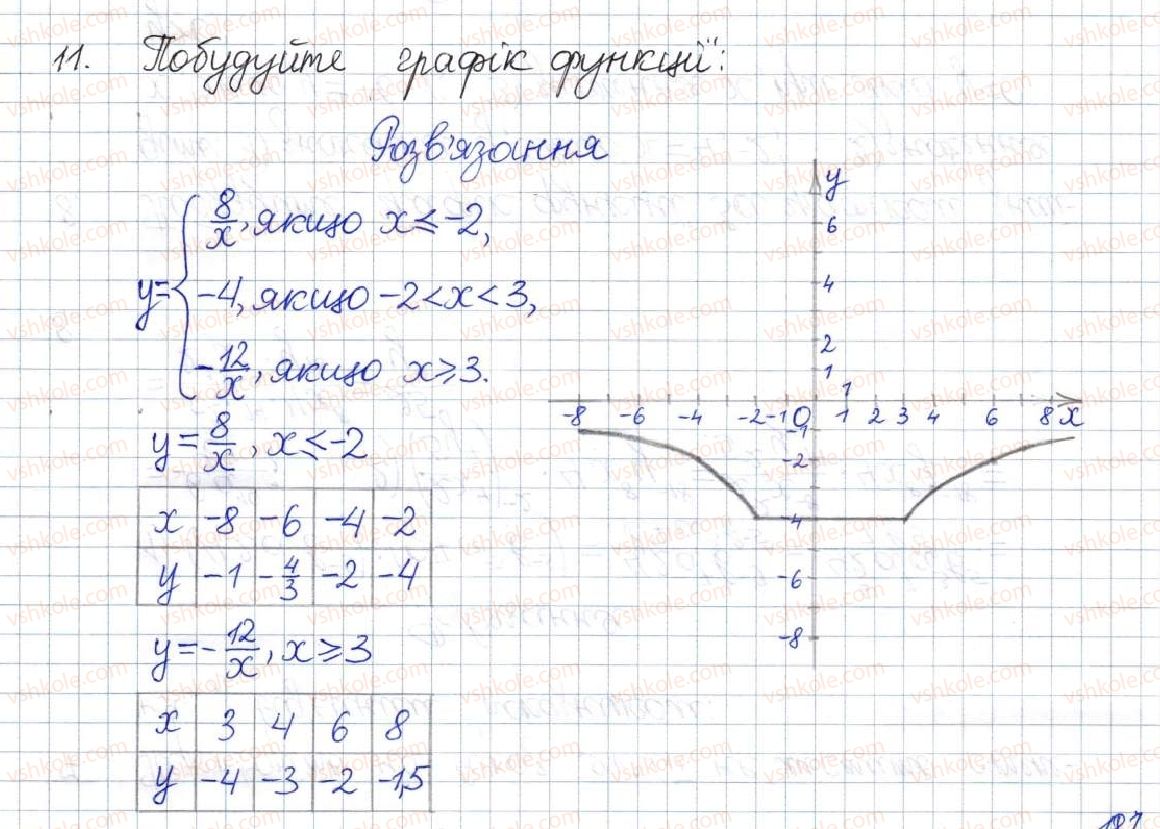 11. Побудуйте графік функції:
Розв'язання
y = { 8/x, якщо x ≤ -2,
-4, якщо -2 < x < 3,
- 12/x, якщо x ≥ 3.
y = 8/x, x ≤ -2
x -8 -6 -4 -2
y -1 -4/3 -2 -4
y = - 12/x, x ≥ 3
x 3 4 6 8
y -4 -3 -2 -1,5
y
6
4
2
1
1
-8 -6 -4 -2 -1 0 1 2 3 4 6 8 x
-1
-2
-4
-6
-8
vshkole.com